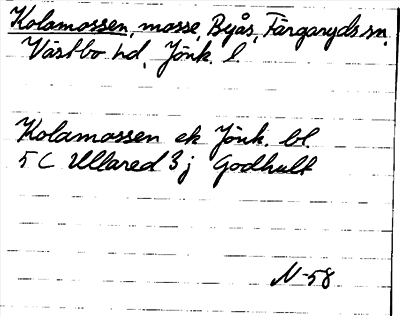 Kolamossen, mosse, Byås, Färgaryds sn,
Västbo hd, Jönk. l.
Kolamossen ek Jönk. bl.
5 C Ullared 3 j Godhult
N-58